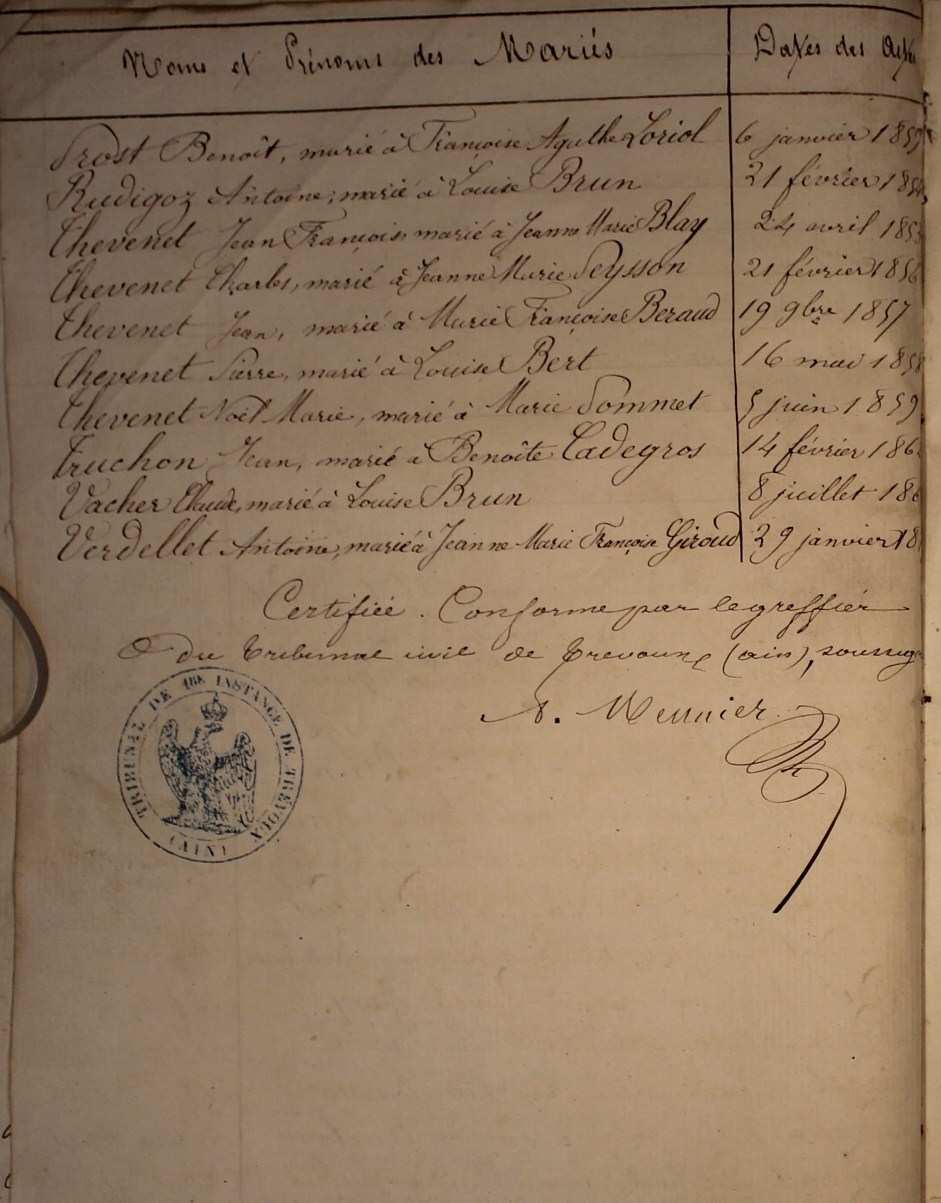 Noms et Prénoms des Mariés Dates des Actes
Prost Benoît, marié à Françoise Agathe Loriol 6 janvier 185
Rudigoz Antoine, marié à Louise Brun 21 février 185
Thevenet Jean François marié à Jeanne Marie Blay 24 avril 185
Thevenet Charles, marié à Jeanne Marie Peysson 21 février 185
Thevenet Jean, marié à Marie Françoise Beraud 19 9bre 1857
Thevenet Pierre, marié à Louise Bert 16 mai 1858
Thevenet Noël Marie, marié à Marie Pommet 5 juin 1859
Truchon Jean, marié à Benoîte Cadegros 14 février 186
Vacher Claude, marié à Louise Brun 8 juillet 186
Verdellet Antoine, marié à Jeanne Marie Françoise Giroud 29 janvier 18
Certifiée Conforme par le greffier
du tribunal civil de Trevoux (ain), soussig
A. Meunier
TRIBUNAL DE 1RE INSTANCE DE TRÉVOUX
(AIN)